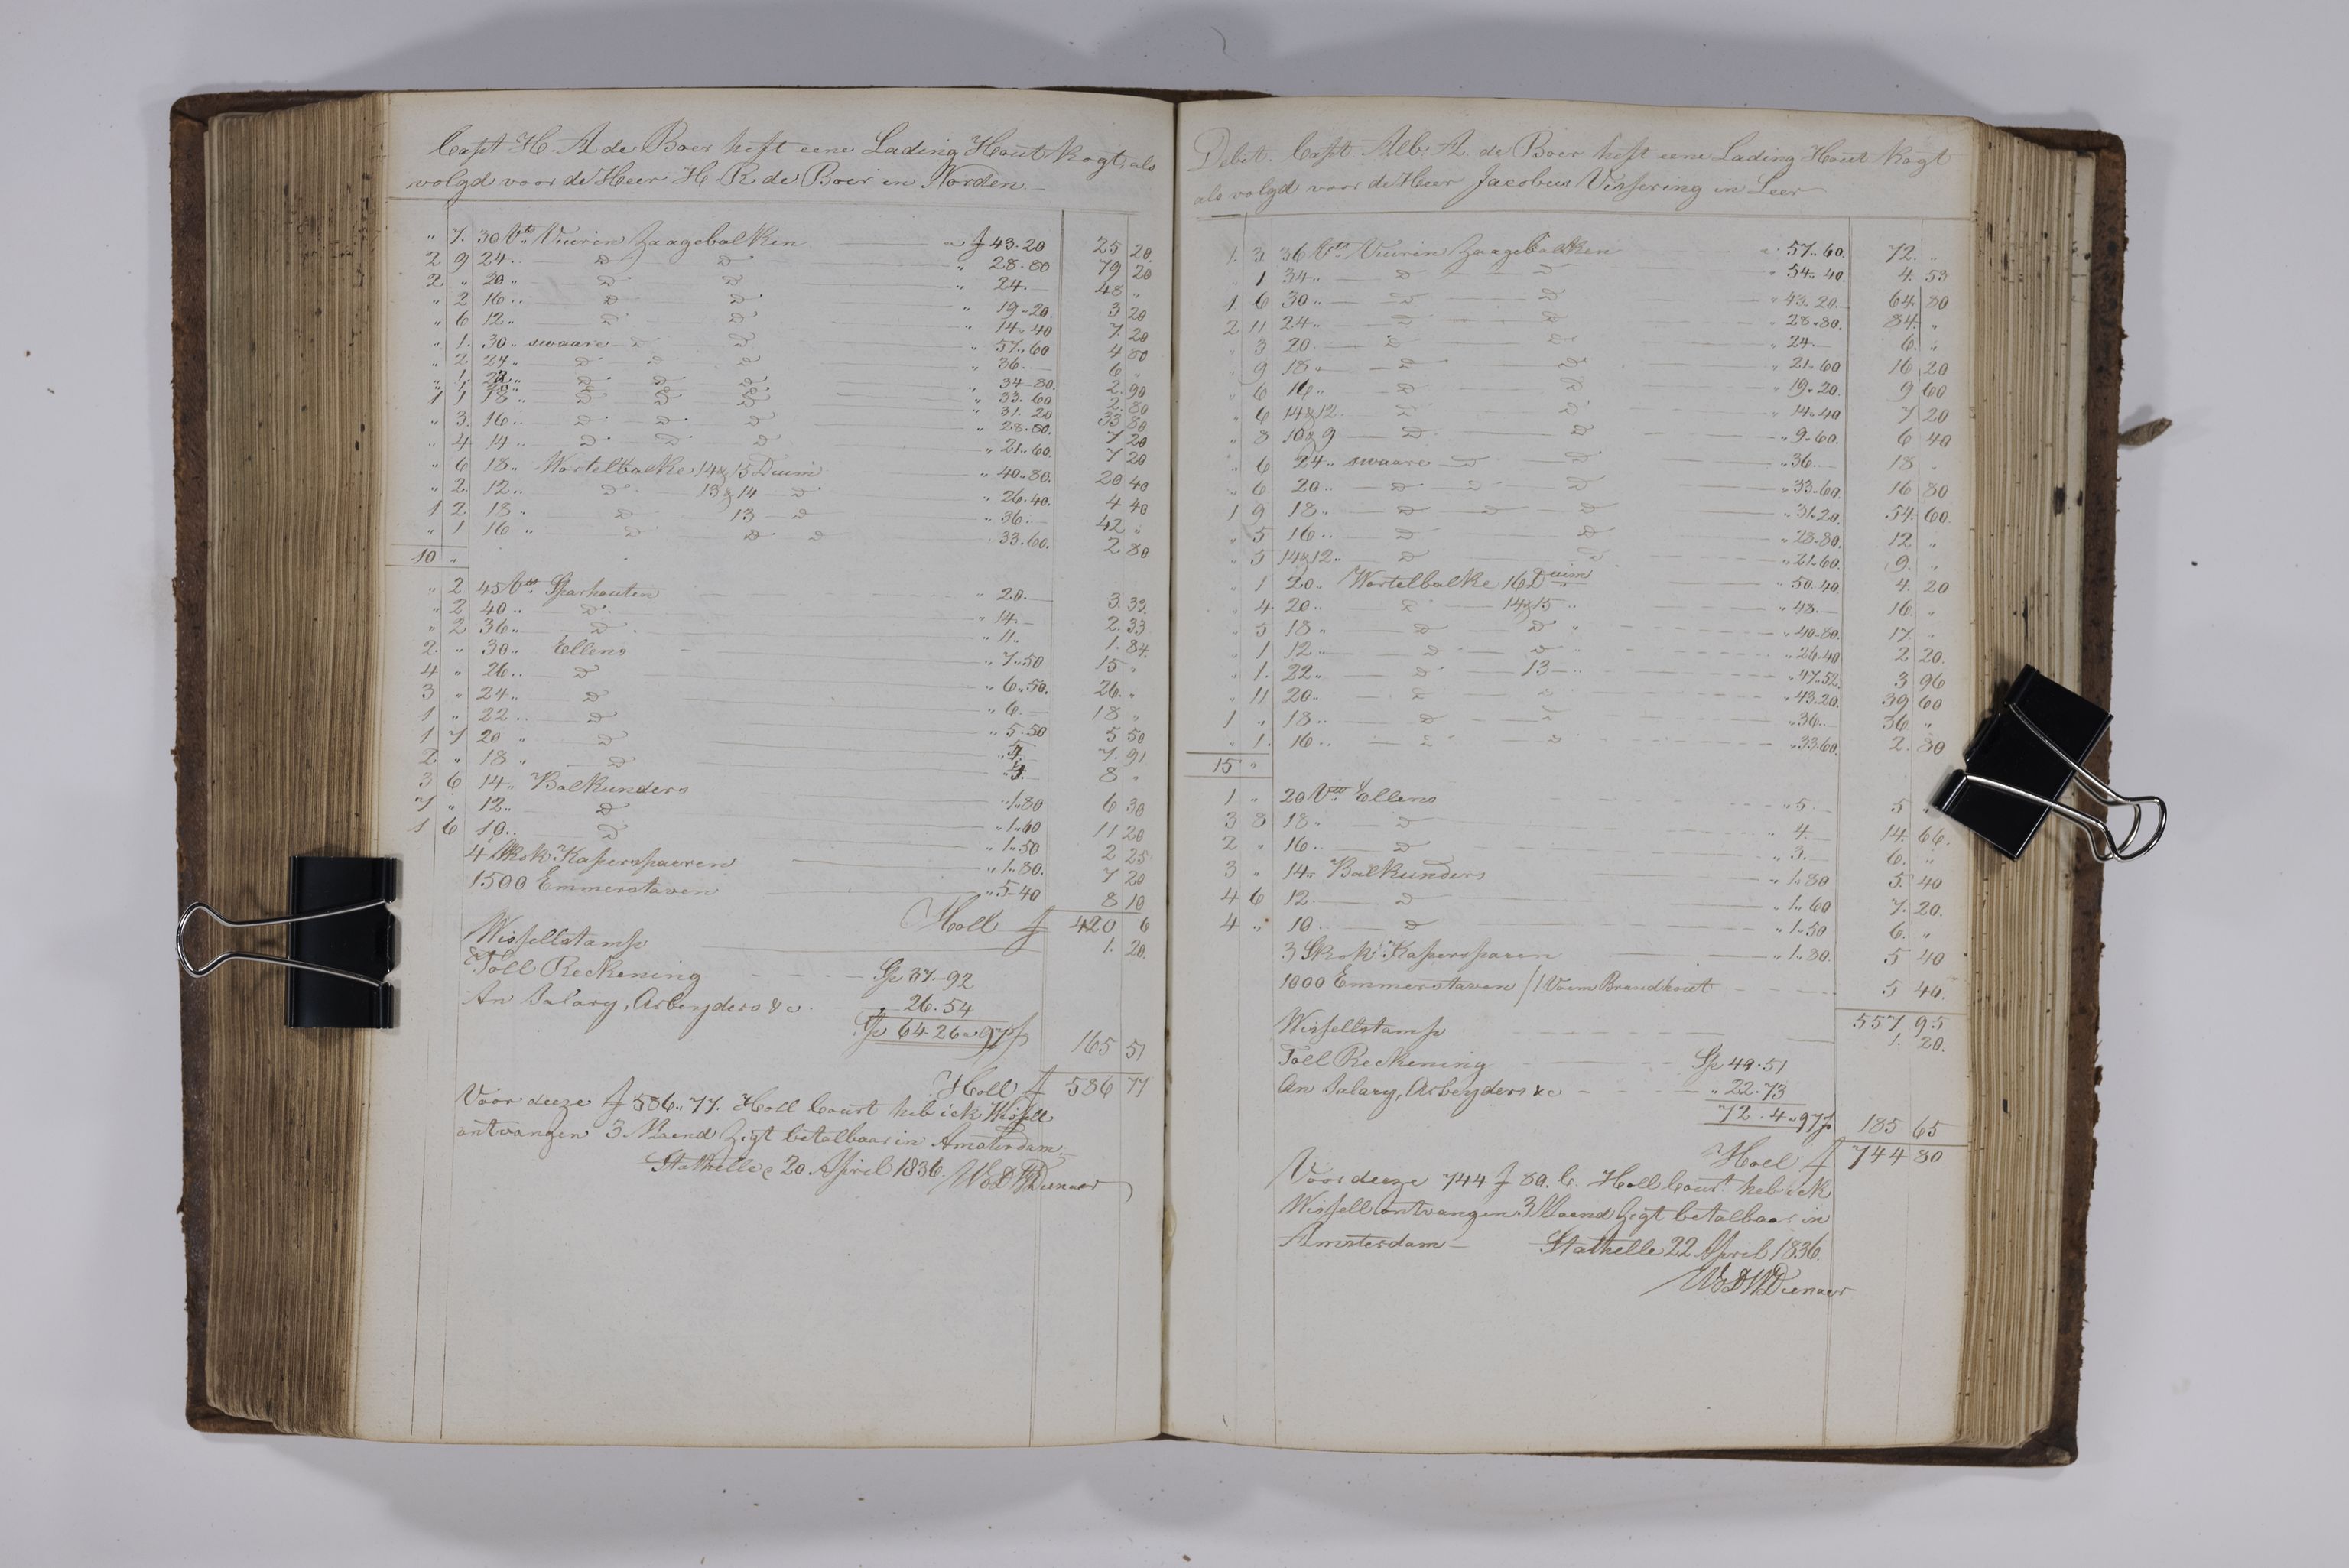 Capt H. A de Boer heft eene Lading Hout kogt, als
volgd voor de Heer H. R de Boer in Norden
" 7. 30 Vt. Vuirin Zaagebalken " f 43.20 25 20.
2 9 24.. D D " 28.80 79 20
2 " 20 " D D " 24.— 48 "
" 2 16 .. D D " 19.20. 3 20
" 6 12.. D D " 14.40 7. 20
" 1. 30 .. swaare D D " 57.60 4 80
" 2. 24 .. D D D " 36.— 6 "
" 1. 22.. D D D " 34-80. 2. 90
" 1 20.. D D D " 33. 60 2. 80
1 1 18 .. D D D " 31. 20 33 80
" 3. 16.. D D D " 28.80. 7 20
" 4 14 .. D D D " 21.60. 7 20
" 6 18 .. Wortelbalke 14 & 15 Duim " 40.80. 20 40
" 2. 12.. D 13 & 14 D " 26.40. 4 40
1 2. 18 " D 13 D " 36.— 42 "
" 1 16 " D D D 33.60. 2 80
10 "
" 2 45 Vt Sparhouten " 20.— 3. 33.
" 2 40 .. D " 14.— 2. 33
" 2 36 .. D " 11. 1. 84.
2. " 30 .. Ellens " 7.50 15 "
4 " 26.. D " 6.50. 26. "
3 " 24.. D " 6.— 18 "
1 " 22 .. D " 5.50 5 50
1 7 20 " D " 5.— 7. 91
2. " 18 " D " 4.— 8 "
3 6 14.. Balkunders " 1.80 6 30
7 " 12.. D " 1.60 11 20
1 6 10.. D " 1.50 2 25
4 Skok Kaperspaeren " 1.80. 7 20
1500 Emmerstaven " 5-40 8 10
Holl f 420 6
Wissellstamp 1. 20.
Toll Reckening Sp 37-92
An Salary, Arbeyders &c. 26.54
Sp 64.26 a 97 165 51
Holl f 586 77
Voor deeze f 586.. 77. Holl Court heb ick Wissell
ontvangen 3 Maend Zigt betalbaar in Amsterdam.
Stathelle 20 April 1836. Dienaer
Debet. Capt Alb. A. de Boer heft eene Lading Hout kogt
als volgd voor de Heer Jacobus Vissering in Leer
1. 3 36 Vt. Vuirin Zaagebalken " 57..60. 72. "
" 1 34 .. D D " 54.40. 4. 53
1 6 30 .. D D " 43.20. 64. 80
2 11 24 .. D D " 28.80. 84. "
" 3 20. D D " 24.— 6. "
" 9 18 .. D D " 21.60 16 20
" 6 16.. D D " 19.20. 9 60
" 6 14 & 12. D D " 14.40 7 20
" 8 10 & 9 D D " 9.60. 6 40
" 6 24.. swaare D D " 36.— 18 "
" 6 20 .. D D D " 33.60. 16 80
1 9 18 .. D D D " 31.20. 54. 60.
" 5 16 .. D D " 28.80. 12 "
" 5 14 & 12.. D D " 21.60. 9. "
" 1 20.. Wortelbalke 16 Duim " 50.40. 4. 20
" 4. 20 .. D 14 & 15 .. " 48.— 16. "
" 5 18 .. D D " 40.80. 17. "
" 1 12 .. D D " 26.40 2 20.
" 1. 22.. D 13 " 47.52. 3 96
" 11 20.. D " " 43.20. 39 60
1 " 18 .. D " " 36.— 36. "
" 1. 16 .. D " " 33.60. 2. 80
15 "
1 " 20 Vt Ellens " 5.— 5 "
3 8 18 .. D " 4.— 14. 66.
2 " 16.. D " 3.— 6. "
3 " 14.. Balkunders " 1.80 5. 40
4 6 12. D " 1.60 7. 20.
4 " 10. D " 1.50 6. "
3 Skok Kapersparen " 1.80. 5 40
1000 Emmerstaven / 1 Vaem Brandhout 5 40.
557 95
Wissellstamp 1. 20.
Toll Reckening Sp 49.51
An Salary, Arbeyders &c " 22.73
72.4 a 97 185 65
Holl f 744 80
Voor deeze 744 f 80. C. Holl Court heb ick
Wissell ontvangen 3 Maend Zigt betalbaar in
Amsterdam— Stathelle 22 April 1836.
Dienaer